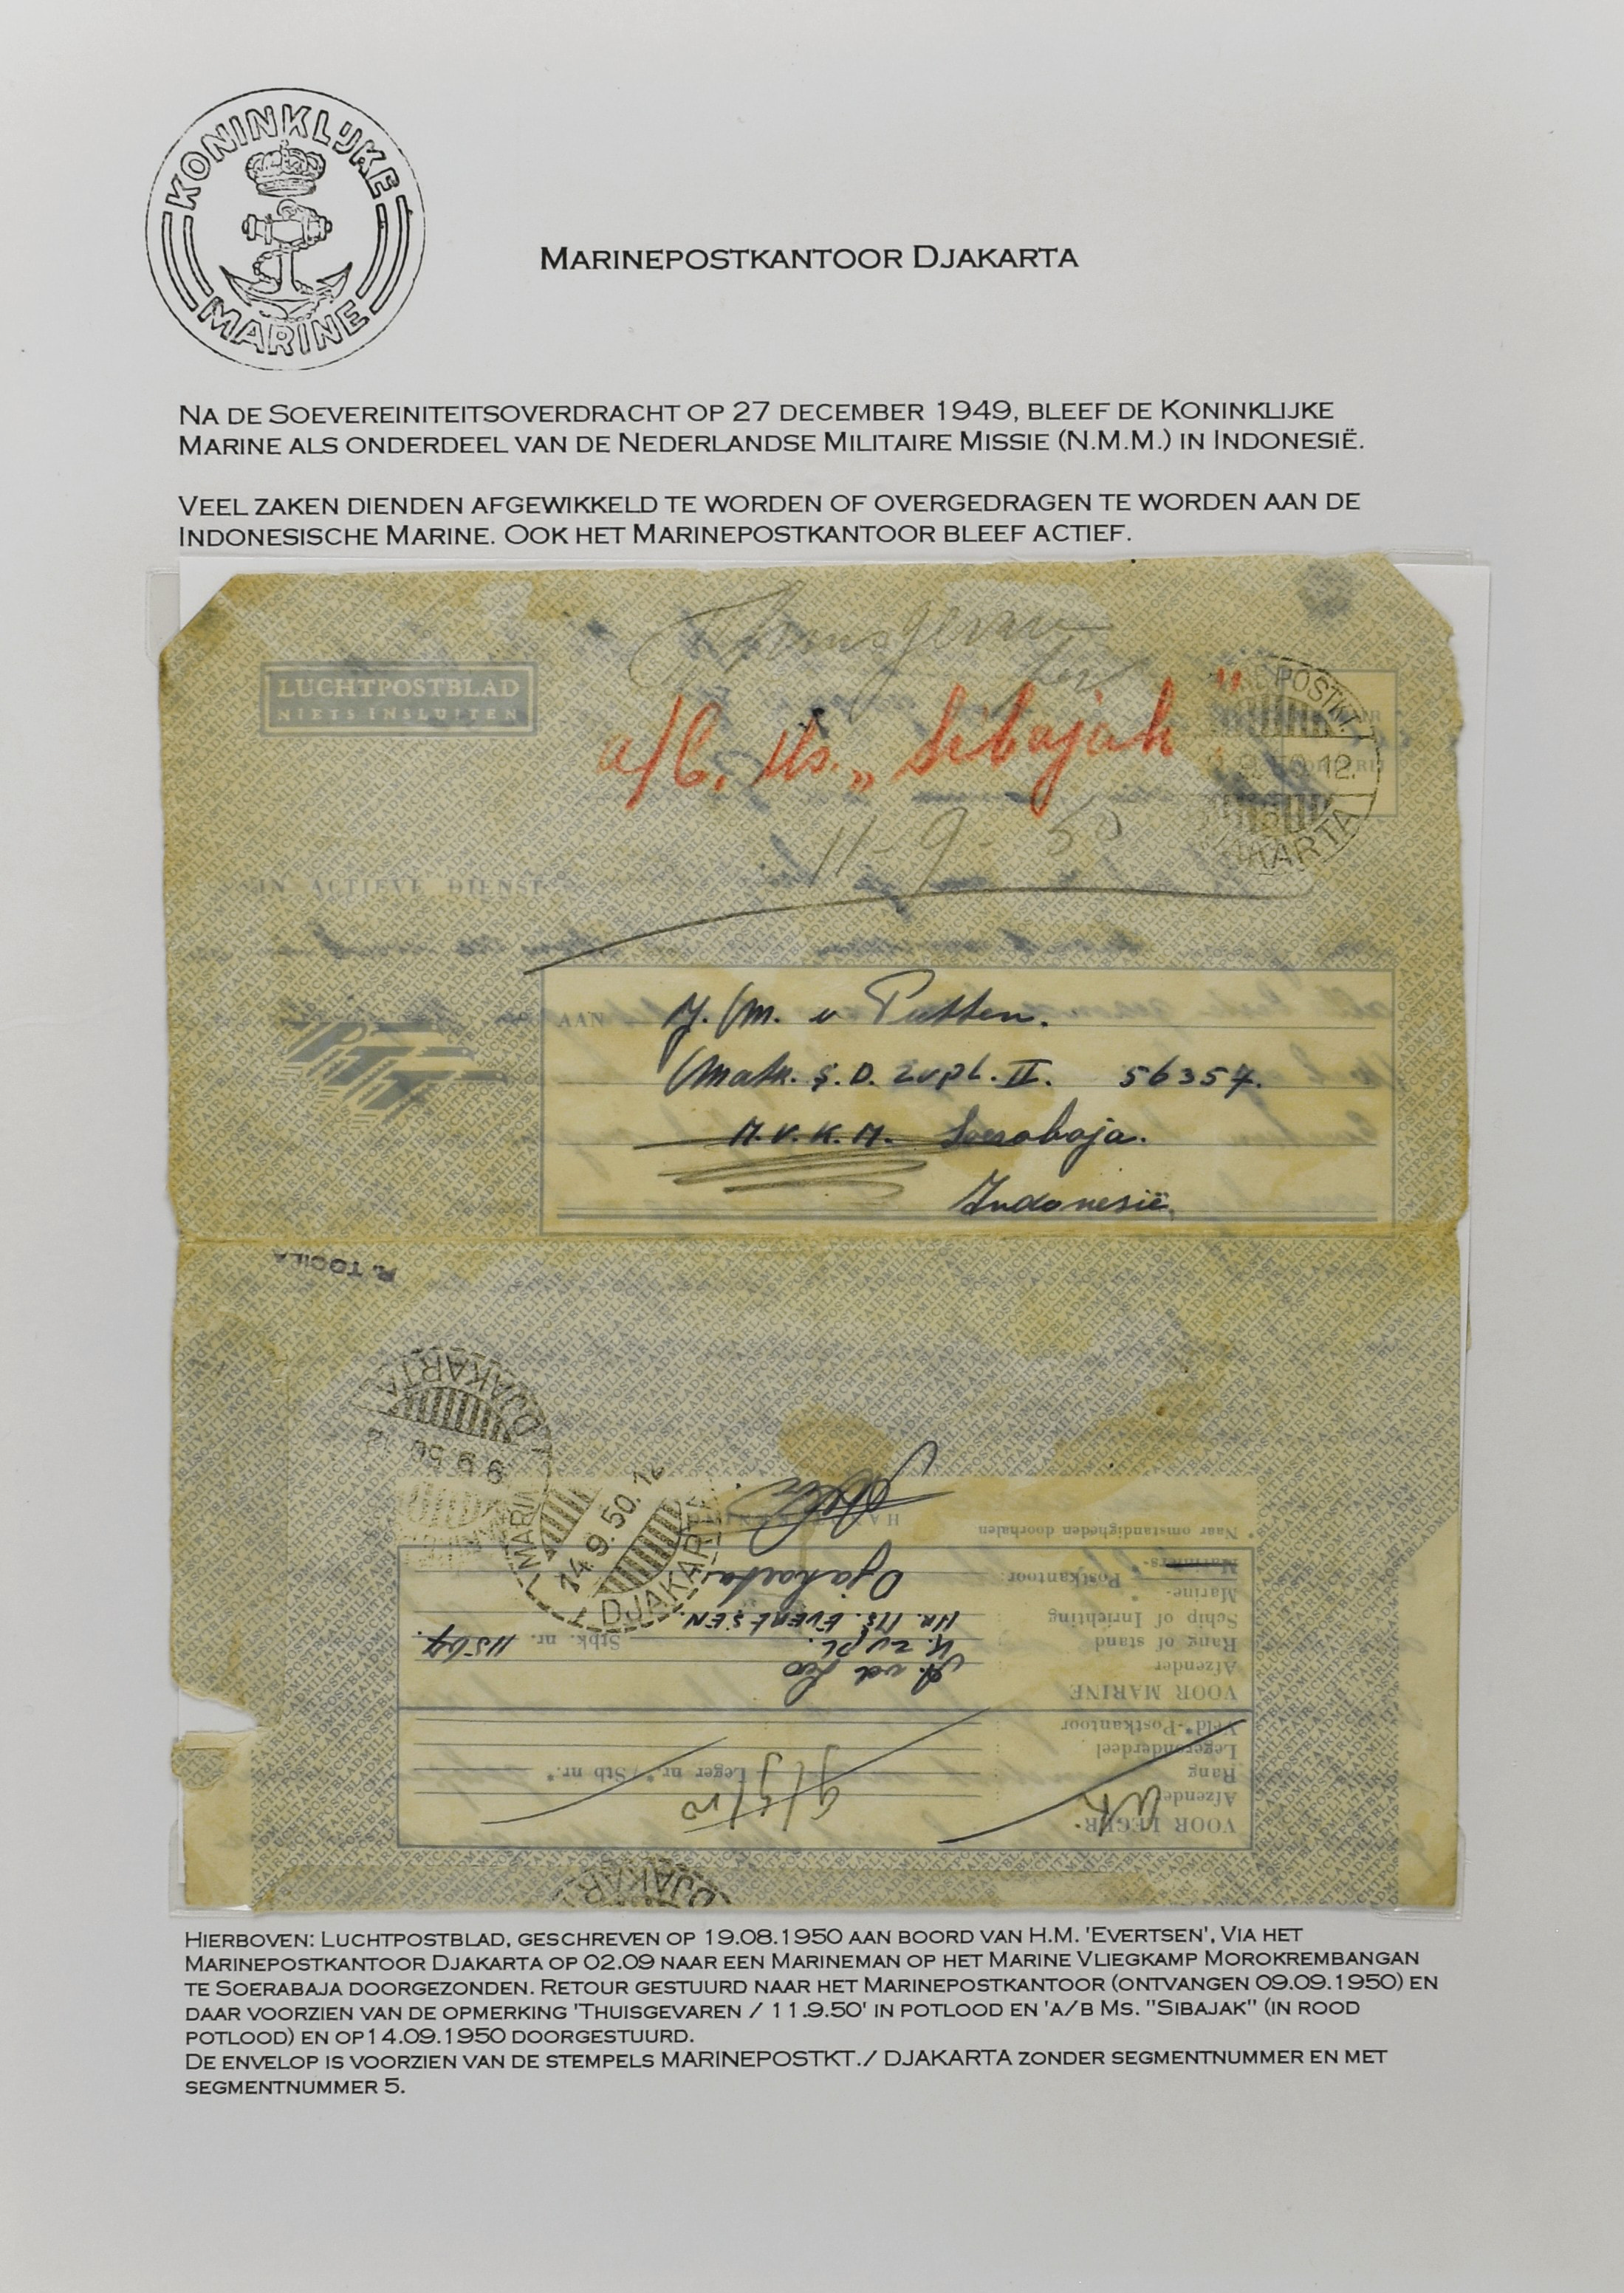 KONINKLIJKE
MARINE
MARINEPOSTKANTOOR DJAKARTA
NA DE SOEVEREINITEITSOVERDRACHT OP 27 DECEMBER 1949, BLEEF DE KONINKLIJKE
MARINE ALS ONDERDEEL VAN DE NEDERLANDSE MILITAIRE MISSIE (N.M.M.) IN INDONESIË.
VEEL ZAKEN DIENDEN AFGEWIKKELD TE WORDEN OF OVERGEDRAGEN TE WORDEN AAN DE
INDONESISCHE MARINE. OOK HET MARINEPOSTKANTOOR BLEEF ACTIEF.
LUCHTPOSTBLAD
NIETS INSLUITEN
a/b. Ms. „Sibajak"
11-9-50
IN ACTIEVE DIENST
PTT
AAN J. M. v Putten.
Matr. S.D. zvpl. II. 56357.
M.V.K.M. Soerabaja.
Indonesië.
DJAKARTA
9.9.50.12
14.9.50.12
DJAKARTA
* Naar omstandigheden doorhalen
Mariniers-
Marine- * Postkantoor: Djakarta
Schip of Inrichting HR. MS. EVERTSEN.
Rang of stand K. zvpl. Stbk. nr. 11567.
Afzender
VOOR MARINE
Veld*-Postkantoor
Legeronderdeel
Rang Leger nr*/Stb nr.*
Afzender
VOOR LEGER
DJAKARTA
HIERBOVEN: LUCHTPOSTBLAD, GESCHREVEN OP 19.08.1950 AAN BOORD VAN H.M. 'EVERTSEN', VIA HET
MARINEPOSTKANTOOR DJAKARTA OP 02.09 NAAR EEN MARINEMAN OP HET MARINE VLIEGKAMP MOROKREMBANGAN
TE SOERABAJA DOORGEZONDEN. RETOUR GESTUURD NAAR HET MARINEPOSTKANTOOR (ONTVANGEN 09.09.1950) EN
DAAR VOORZIEN VAN DE OPMERKING 'THUISGEVAREN / 11.9.50' IN POTLOOD EN 'A/B MS. "SIBAJAK" (IN ROOD
POTLOOD) EN OP14.09.1950 DOORGESTUURD.
DE ENVELOP IS VOORZIEN VAN DE STEMPELS MARINEPOSTKT./ DJAKARTA ZONDER SEGMENTNUMMER EN MET
SEGMENTNUMMER 5.